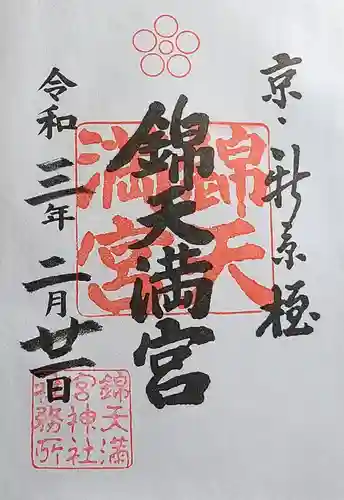 京・新京極
錦天満宮
錦天
満宮
令和三年二月廿一日
錦天満
宮神社
社務所